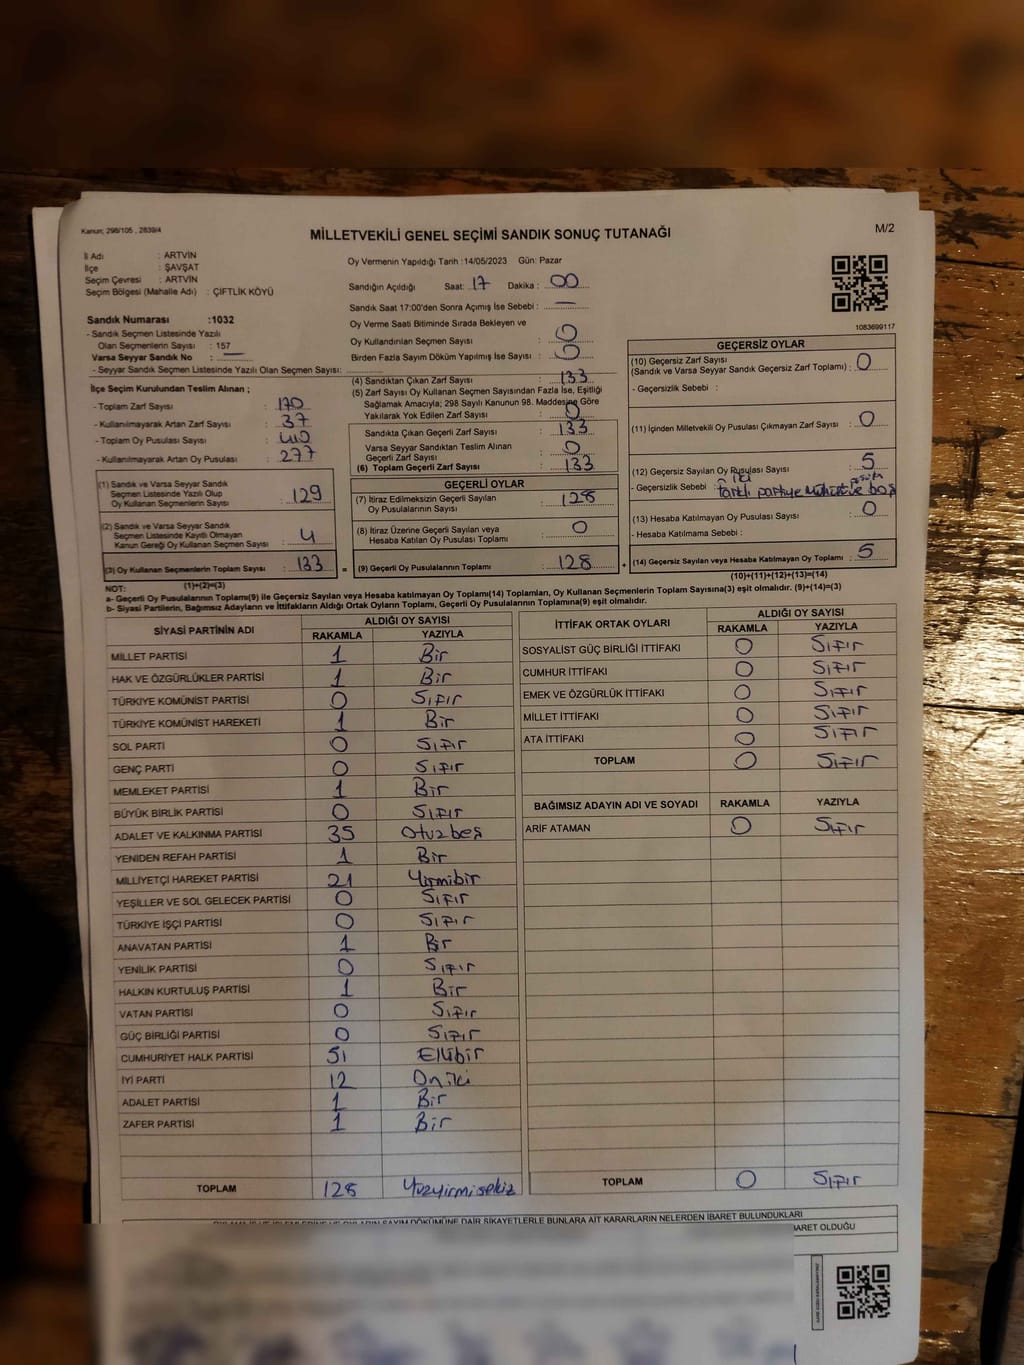 Kanun; 298/105 , 2839/4
MİLLETVEKİLİ GENEL SEÇİMİ SANDIK SONUÇ TUTANAĞI
M/2
İl Adı : ARTVİN
İlçe : ŞAVŞAT
Seçim Çevresi : ARTVİN
Seçim Bölgesi (Mahalle Adı) : ÇİFTLİK KÖYÜ
Sandık Numarası :1032
- Sandık Seçmen Listesinde Yazılı
Olan Seçmenlerin Sayısı : 157
Varsa Seyyar Sandık No : —
- Seyyar Sandık Seçmen Listesinde Yazılı Olan Seçmen Sayısı:
İlçe Seçim Kurulundan Teslim Alınan ;
- Toplam Zarf Sayısı : 170
- Kullanılmayarak Artan Zarf Sayısı : 37
- Toplam Oy Pusulası Sayısı : 410
- Kullanılmayarak Artan Oy Pusulası : 277
(1) Sandık ve Varsa Seyyar Sandık
Seçmen Listesinde Yazılı Olup
Oy Kullanan Seçmenlerin Sayısı : 129
(2) Sandık ve Varsa Seyyar Sandık
Seçmen Listesinde Kayıtlı Olmayan
Kanun Gereği Oy Kullanan Seçmen Sayısı : 4
(3) Oy Kullanan Seçmenlerin Toplam Sayısı : 133
(1)+(2)=(3)
Oy Vermenin Yapıldığı Tarih :14/05/2023 Gün: Pazar
Sandığın Açıldığı Saat: 17 Dakika : 00
Sandık Saat 17:00'den Sonra Açımış İse Sebebi : —
Oy Verme Saati Bitiminde Sırada Bekleyen ve
Oy Kullandırılan Seçmen Sayısı : 0
Birden Fazla Sayım Döküm Yapılmış İse Sayısı : 0
(4) Sandıktan Çıkan Zarf Sayısı : 133
(5) Zarf Sayısı Oy Kullanan Seçmen Sayısından Fazla İse, Eşitliği
Sağlamak Amacıyla; 298 Sayılı Kanunun 98. Maddesine Göre
Yakılarak Yok Edilen Zarf Sayısı : 0
Sandıkta Çıkan Geçerli Zarf Sayısı : 133
Varsa Seyyar Sandıktan Teslim Alınan
Geçerli Zarf Sayısı : 0
(6) Toplam Geçerli Zarf Sayısı : 133
GEÇERLİ OYLAR
(7) İtiraz Edilmeksizin Geçerli Sayılan
Oy Pusulalarının Sayısı : 128
(8) İtiraz Üzerine Geçerli Sayılan veya
Hesaba Katılan Oy Pusulası Toplamı : 0
= (9) Geçerli Oy Pusulalarının Toplamı : 128 +
1083699117
GEÇERSİZ OYLAR
(10) Geçersiz Zarf Sayısı
(Sandık ve Varsa Seyyar Sandık Geçersiz Zarf Toplamı) : 0
- Geçersizlik Sebebi :
(11) İçinden Milletvekili Oy Pusulası Çıkmayan Zarf Sayısı : 0
(12) Geçersiz Sayılan Oy Pusulası Sayısı : 5
- Geçersizlik Sebebi : iki farklı partiye mühür ve boş
(13) Hesaba Katılmayan Oy Pusulası Sayısı : 0
- Hesaba Katılmama Sebebi :
(14) Geçersiz Sayılan veya Hesaba Katılmayan Oy Toplamı : 5
(10)+(11)+(12)+(13)=(14)
NOT:
a- Geçerli Oy Pusulalarının Toplamı(9) ile Geçersiz Sayılan veya Hesaba katılmayan Oy Toplamı(14) Toplamları, Oy Kullanan Seçmenlerin Toplam Sayısına(3) eşit olmalıdır. (9)+(14)=(3)
b- Siyasi Partilerin, Bağımsız Adayların ve İttifakların Aldığı Ortak Oyların Toplamı, Geçerli Oy Pusulalarının Toplamına(9) eşit olmalıdır.
SİYASİ PARTİNİN ADI ALDIĞI OY SAYISI
RAKAMLA YAZIYLA
MİLLET PARTİSİ 1 Bir
HAK VE ÖZGÜRLÜKLER PARTİSİ 1 Bir
TÜRKİYE KOMÜNİST PARTİSİ 0 Sıfır
TÜRKİYE KOMÜNİST HAREKETİ 1 Bir
SOL PARTİ 0 Sıfır
GENÇ PARTİ 0 Sıfır
MEMLEKET PARTİSİ 1 Bir
BÜYÜK BİRLİK PARTİSİ 0 Sıfır
ADALET VE KALKINMA PARTİSİ 35 Otuzbeş
YENİDEN REFAH PARTİSİ 1 Bir
MİLLİYETÇİ HAREKET PARTİSİ 21 Yirmibir
YEŞİLLER VE SOL GELECEK PARTİSİ 0 Sıfır
TÜRKİYE İŞÇİ PARTİSİ 0 Sıfır
ANAVATAN PARTİSİ 1 Bir
YENİLİK PARTİSİ 0 Sıfır
HALKIN KURTULUŞ PARTİSİ 1 Bir
VATAN PARTİSİ 0 Sıfır
GÜÇ BİRLİĞİ PARTİSİ 0 Sıfır
CUMHURİYET HALK PARTİSİ 51 Ellibir
İYİ PARTİ 12 Oniki
ADALET PARTİSİ 1 Bir
ZAFER PARTİSİ 1 Bir
TOPLAM 128 Yüzyirmisekiz
İTTİFAK ORTAK OYLARI ALDIĞI OY SAYISI
RAKAMLA YAZIYLA
SOSYALİST GÜÇ BİRLİĞİ İTTİFAKI 0 Sıfır
CUMHUR İTTİFAKI 0 Sıfır
EMEK VE ÖZGÜRLÜK İTTİFAKI 0 Sıfır
MİLLET İTTİFAKI 0 Sıfır
ATA İTTİFAKI 0 Sıfır
TOPLAM 0 Sıfır
BAĞIMSIZ ADAYIN ADI VE SOYADI RAKAMLA YAZIYLA
ARİF ATAMAN 0 Sıfır
TOPLAM 0 Sıfır
DÖKÜMÜNE DAİR ŞİKAYETLERLE BUNLARA AİT KARARLARIN NELERDEN İBARET BULUNDUKLARI
İBARET OLDUĞU